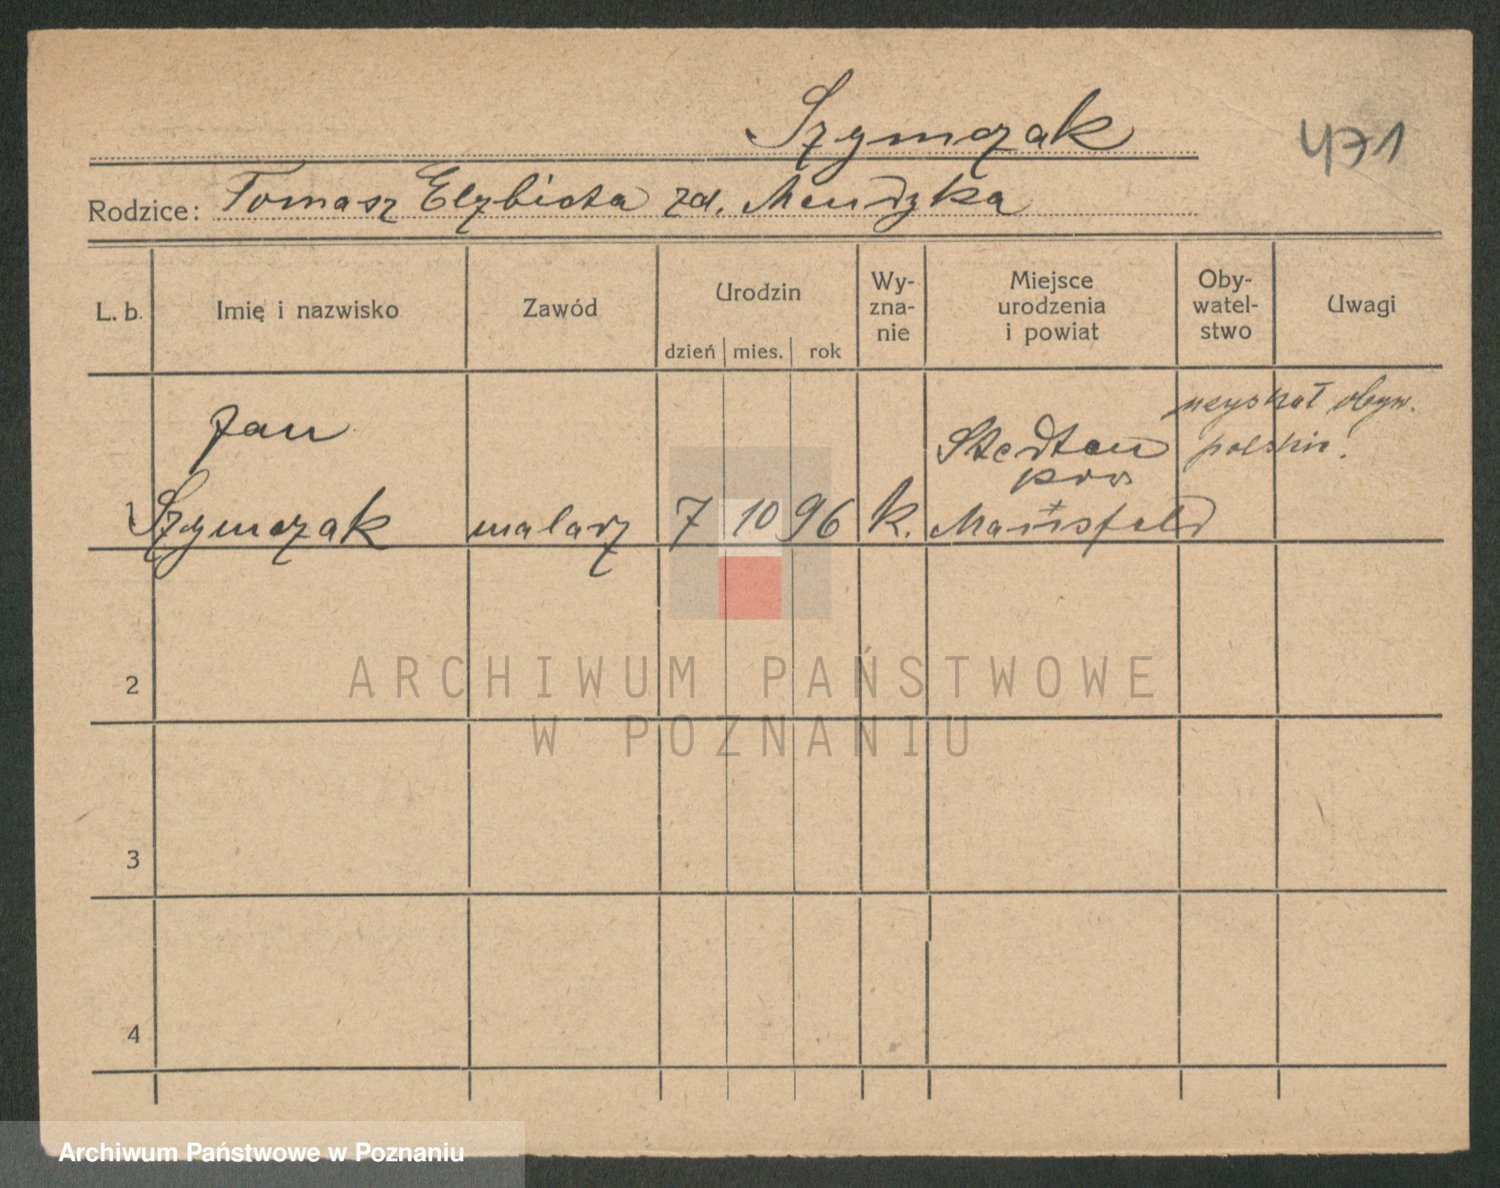 Szymczak
471
Rodzice: Tomasz Elżbieta zd. Mendzka
L. b. Imię i nazwisko Zawód Urodzin Wy-zna-nie Miejsce urodzenia i powiat Oby-watel-stwo Uwagi
dzień mies. rok
Jan
uzyskał obyw.
Stedten
polskie.
pow
1 Szymczak malarz 7 10 96 k. Mansfeld
2
ARCHIWUM PAŃSTWOWE
W POZNANIU
3
4
Archiwum Państwowe w Poznaniu